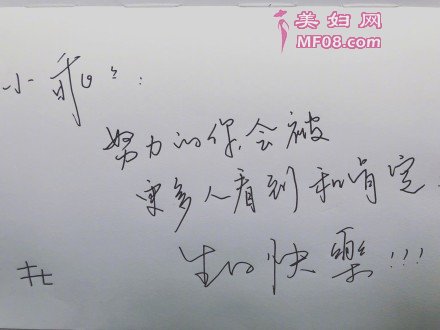 美妇网
MF08.com
小乖：
努力的你,会被
更多人看到和肯定.
生日快乐!!!